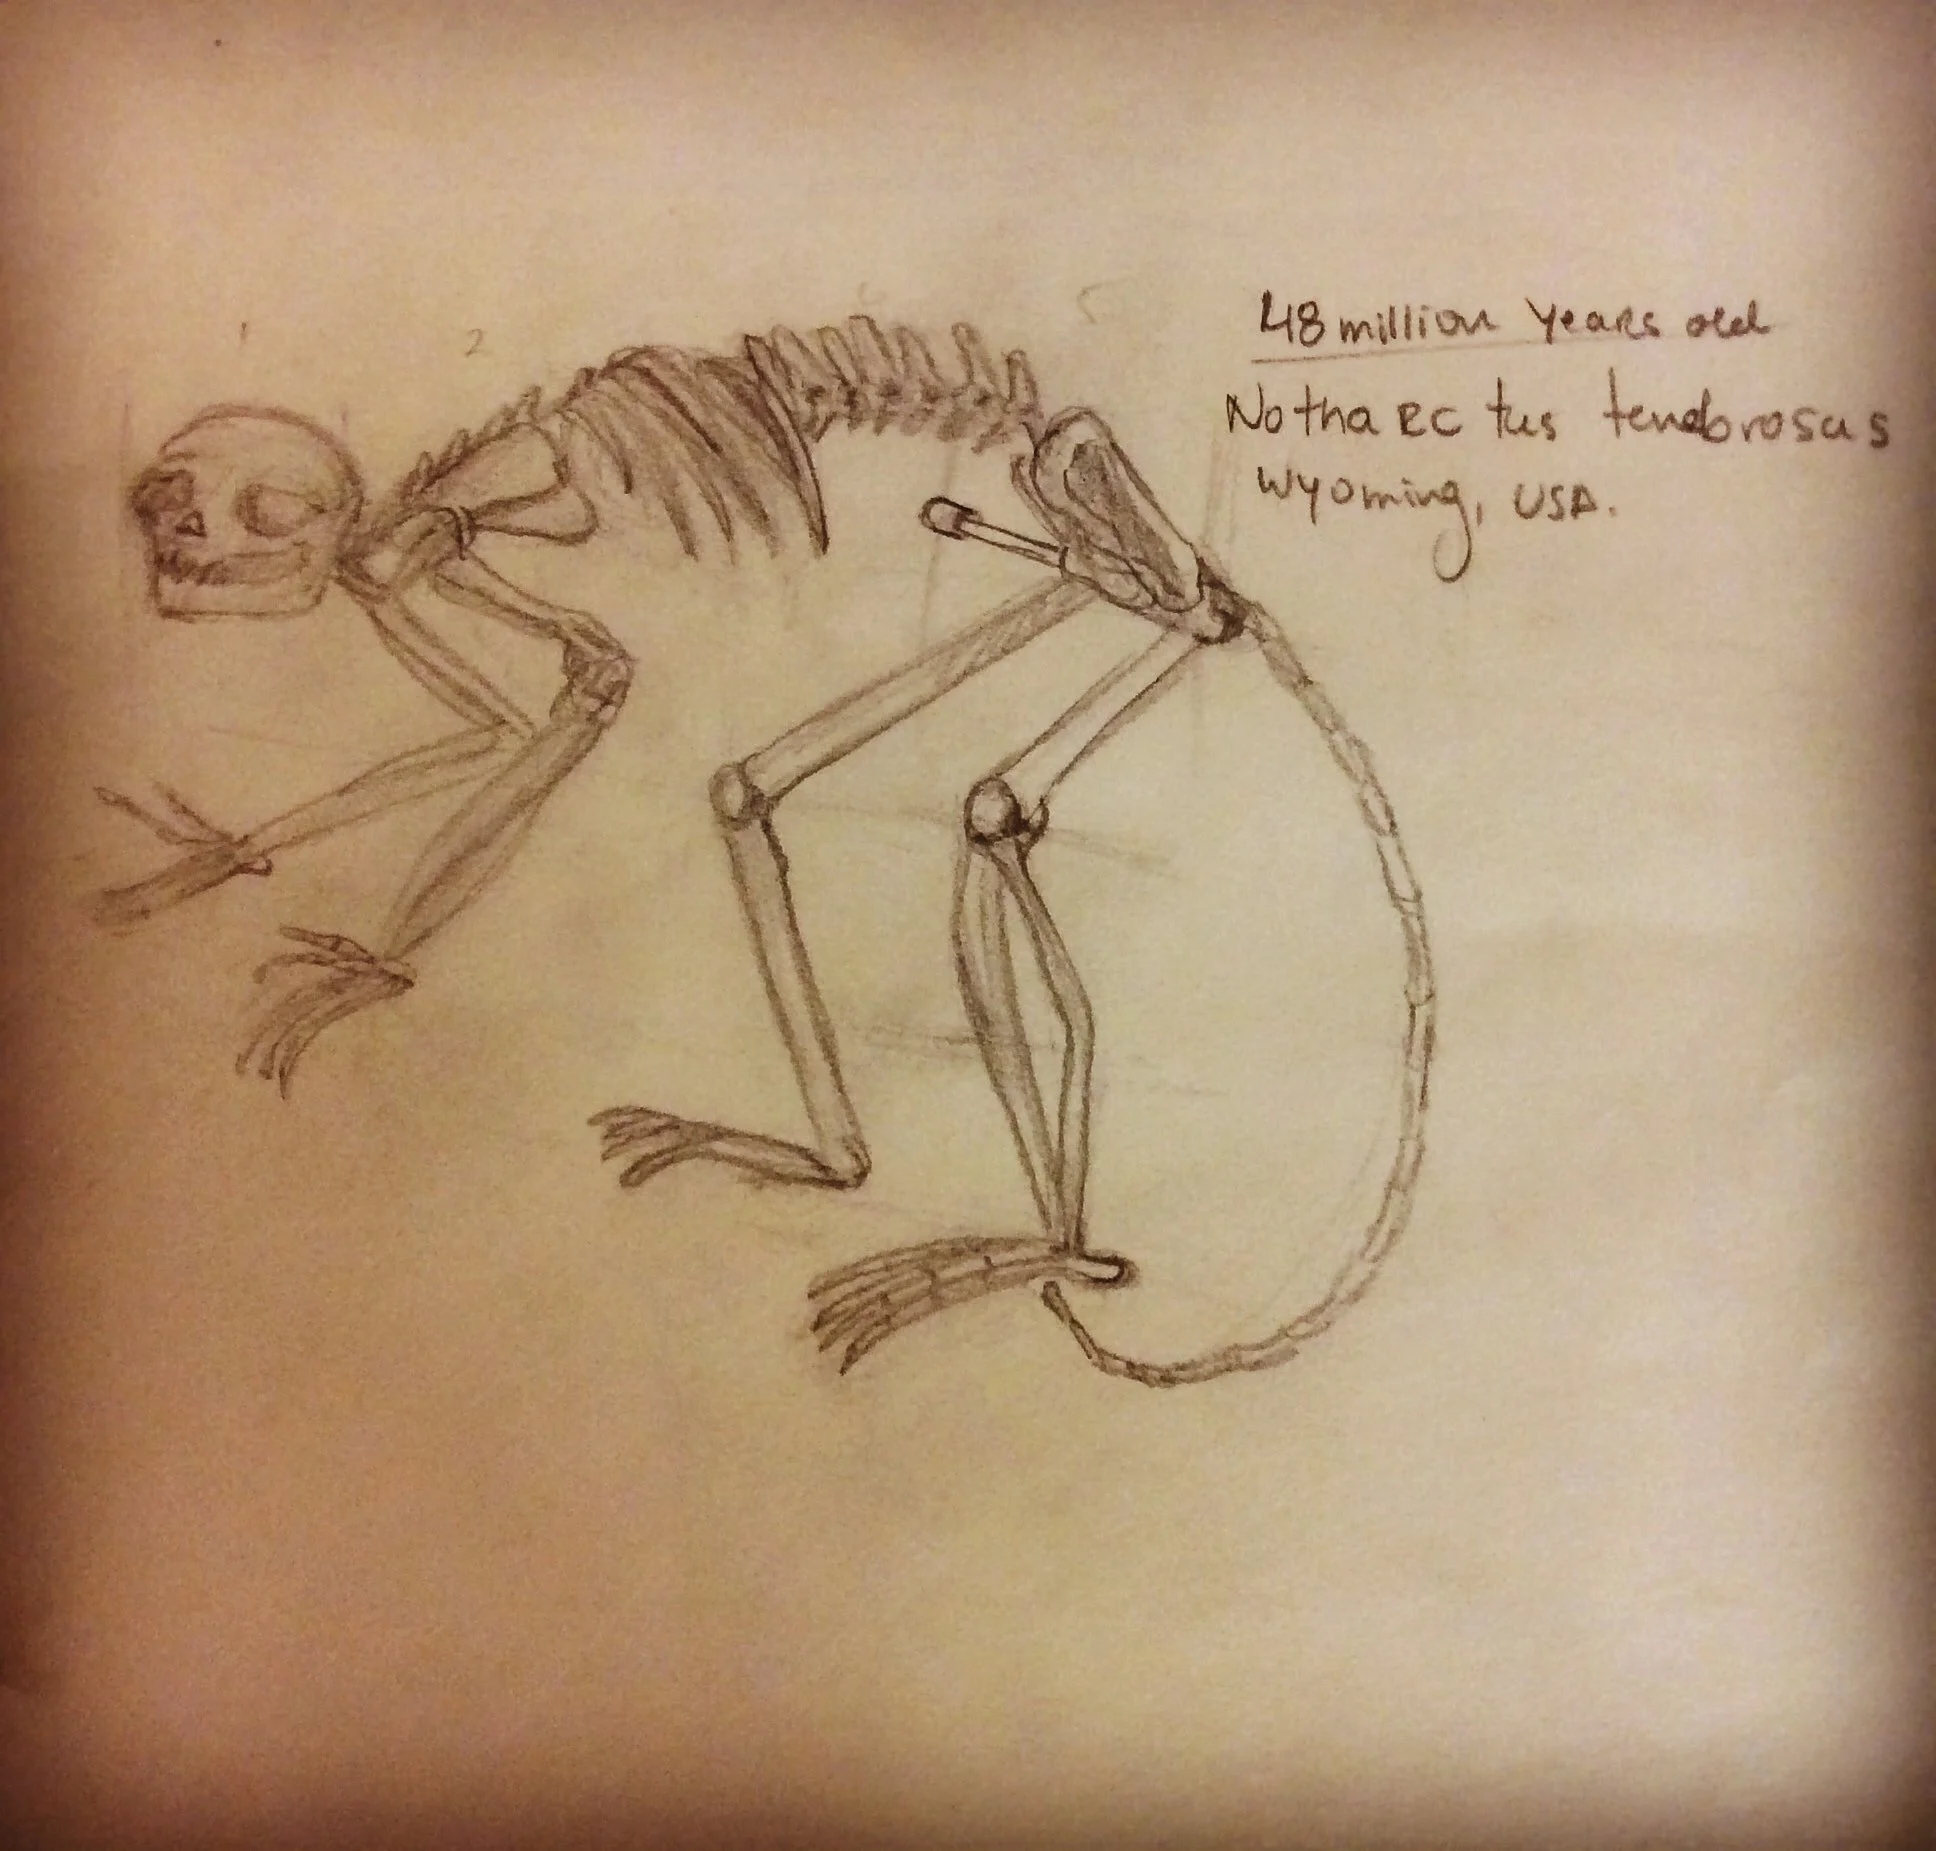 1
2
5
48 million years old
NothaRctus tenebrosus
Wyoming, USA.